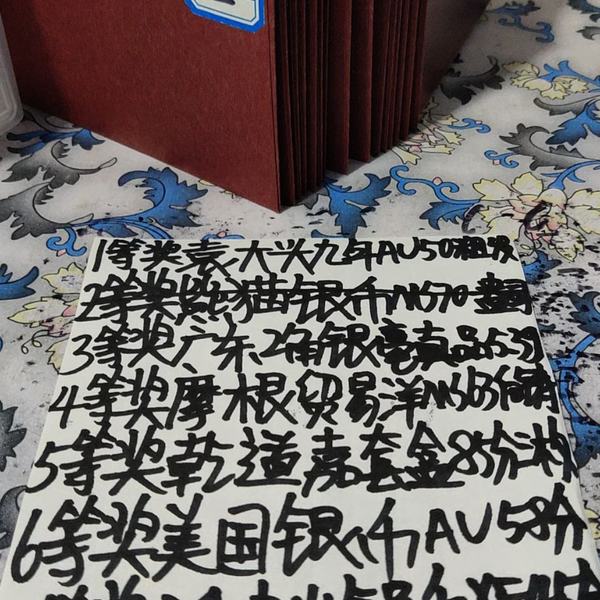 1等奖袁大头九年AU50
2等奖熊猫银币MS70
3等奖广东2角银毫真品
4等奖摩根贸易洋MS63
5等奖乾道嘉套金85分
6等奖美国银币AU58分